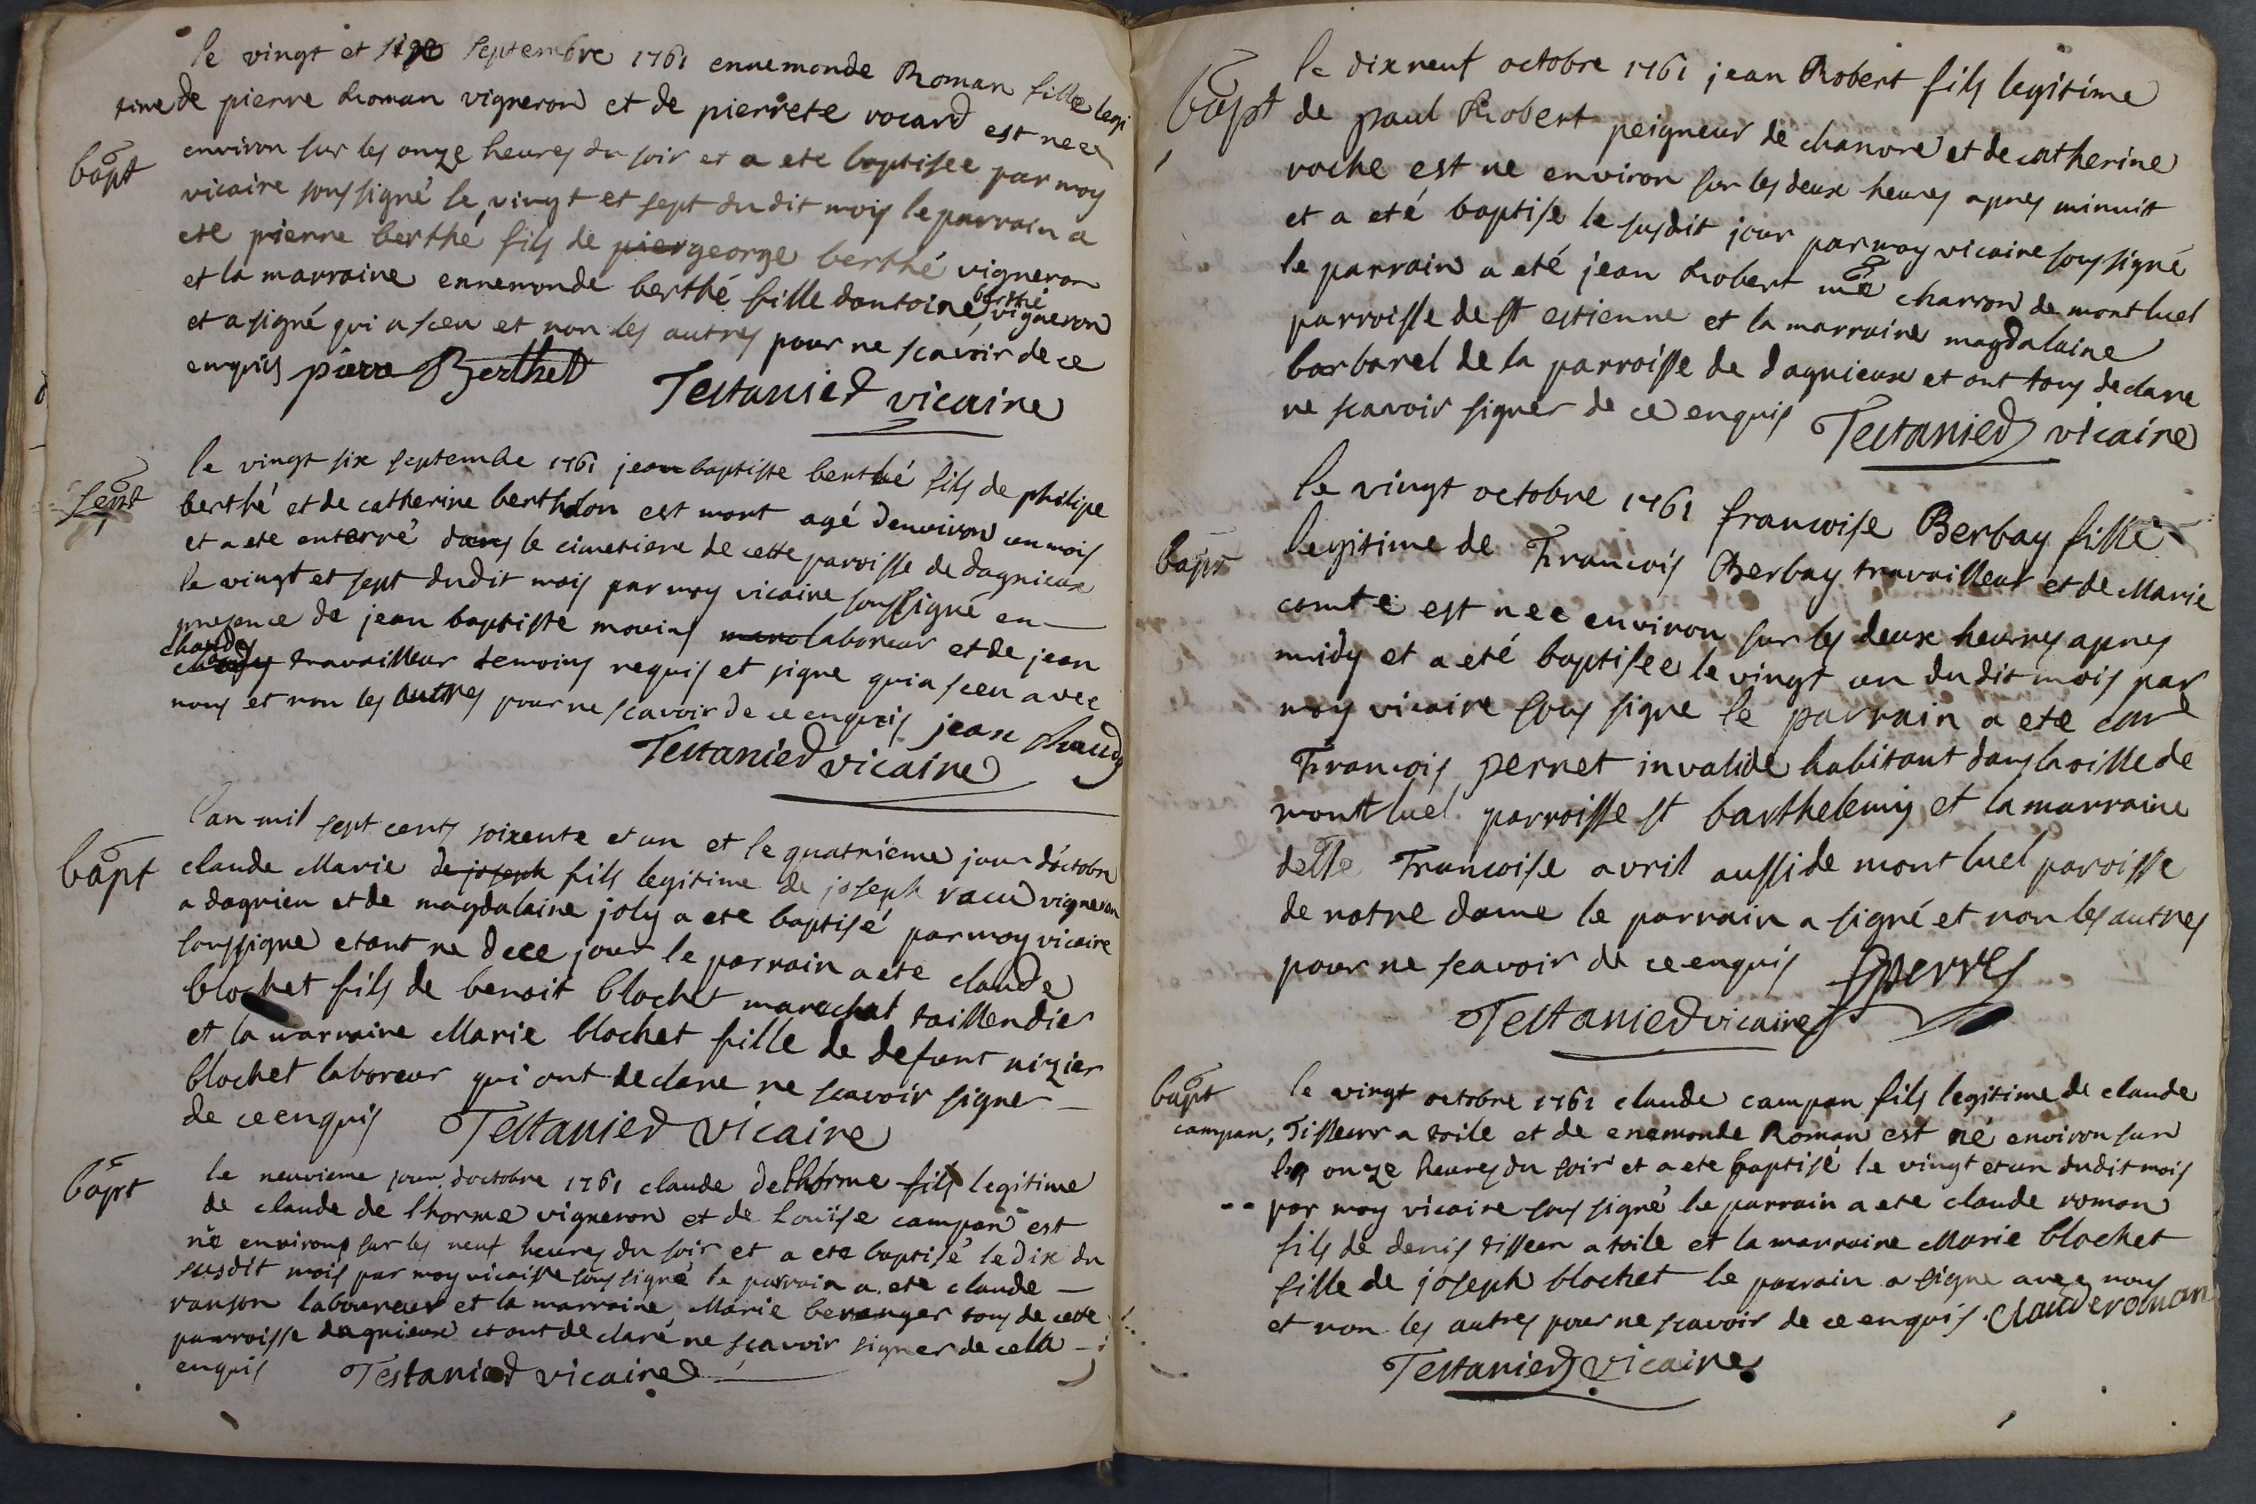 le vingt et six septembre 1761 ennemonde Roman fille legi
time de pierre Roman vigneron et de pierrete vocard est nee
bapt
environ sur les onze heures du soir et a ete baptisee par moy
vicaire soussigné le vingt et sept dudit mois le parrain a
ete pierre berthé fils de pier george berthé vigneron
et la marraine ennemonde berthé fille dantoine berthé vigneron
et a signé qui a sceu et non les autres pour ne scavoir de ce
enquis pierre Berthet
Testanier vicaire
le vingt six septembe 1761 jean baptiste berthé fils de philipe
sept
berthé et de catherine berthelon est mort agé denviron un mois
et a ete enterré dans le cimetiere de cette paroisse de dagnieux
le vingt et sept dudit mois par moy vicaire soussigné en
presence de jean baptiste movins laboreur et de jean
chaudy travailleur temoins requis et signe qui a sceu avec
nous et non les autres pour ne scavoir de ce enquis jean chaudy
Testanier vicaire
l'an mil sept cents soixente et un et le quatrieme jour d'octobre
bapt
claude Marie de joseph fils legitime de joseph vacu vigneron
a dagnieu et de magdalaine joly a ete baptisé par moy vicaire
soussigne etant ne de ce jour le parrain a ete claude
blochet fils de benoit blochet marechal taillendier
et la marraine Marie blochet fille de defunt nizier
blochet laboreur qui ont declare ne scavoir signer
de ce enquis Testanier vicaire
bapt
le neuvieme jour doctobre 1761 claude delhorme fils legitime
de claude de lhorme vigneron et de Louise campan est
né environs sur les neuf heures du soir et a ete baptisé le dix du
susdit mois par moy vicaire sous signé le parrain a ete claude
ranson laboureur et la marraine Marie beranger tous de cette
parroisse dagnieux et ont declaré ne scavoir signer de cella
enquis Testanier vicaire
le dix neuf octobre 1761 jean Robert fils legitime
bapt
de paul Robert peigneur de chanvre et de catherine
roche est ne environ sur les deux heures apres minuit
et a eté baptise le susdit jour par moy vicaire soussigné
le parrain a eté jean Robert me charron de montluel
parroisse de st estienne et la marraine magdalaine
barbarel de la parroisse de dagnieux et ont tous declare
ne scavoir signer de ce enquis Testanier vicaire
le vingt octobre 1761 francoise Berbay fille
bapt
legitime de Francois Berbay travailleur et de Marie
comte est nee environ sur les deux heures apres
midy et a eté baptisee le vingt un dudit mois par
moy vicaire sous signe le parrain a ete
François perret invalide habitant dans la ville de
montluel parroisse st barthelemy et la marraine
delle Francoise avril aussi de montluel paroisse
de notre dame le parrain a signé et non les autres
pour ne scavoir de ce enquis
Testanier vicaire
bapt
le vingt octobre 1761 claude campan fils legitime de claude
campan, Tisseur a toile et de enemonde Roman est né environ sur
les onze heures du soir et a ete baptisé le vingt et un dudit mois
par moy vicaire sous signé le parrain a ete claude roman
fils de denis tisseur a toile et la marraine Marie blochet
fille de joseph blochet le parrain a signe avec nous
et non les autres pour ne scavoir de ce enquis. Claude roman
Testanier vicaire